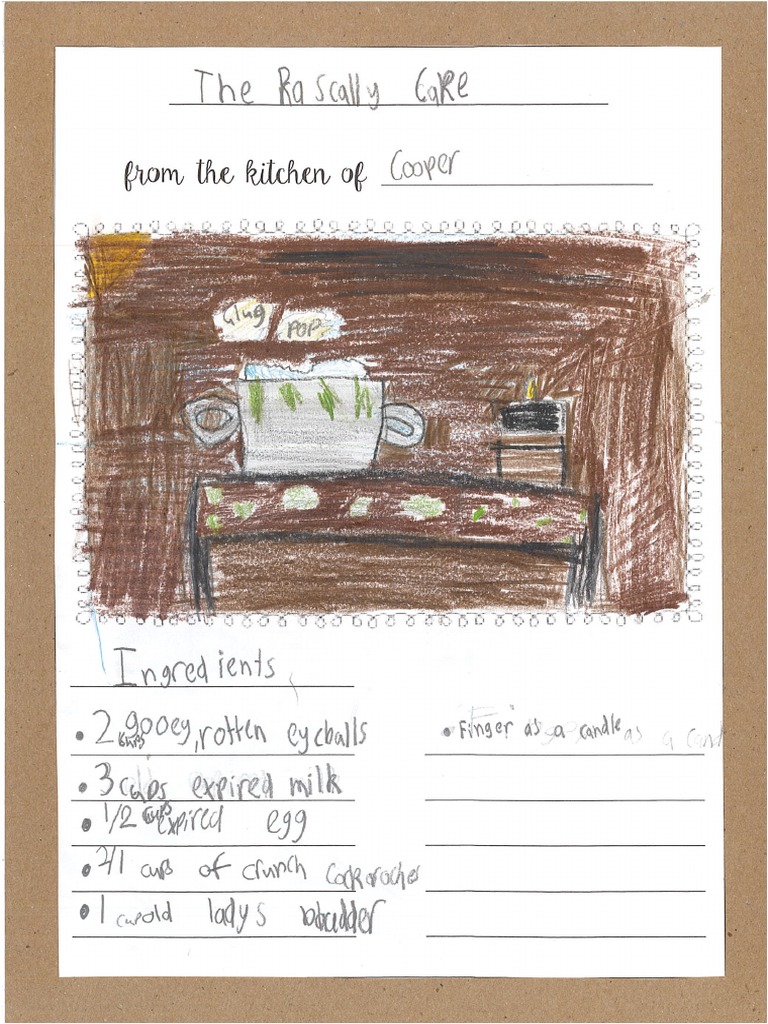 The Rascally Cake
from the kitchen of Cooper
Glug
POP
Ingredients
• 2 cups gooey, rotten eyeballs
• 3 cups expired milk
• 1/2 cups expired egg
• 7/1 cups of crunch cockroches
• 1 old ladys bladder
• Finger as a candle